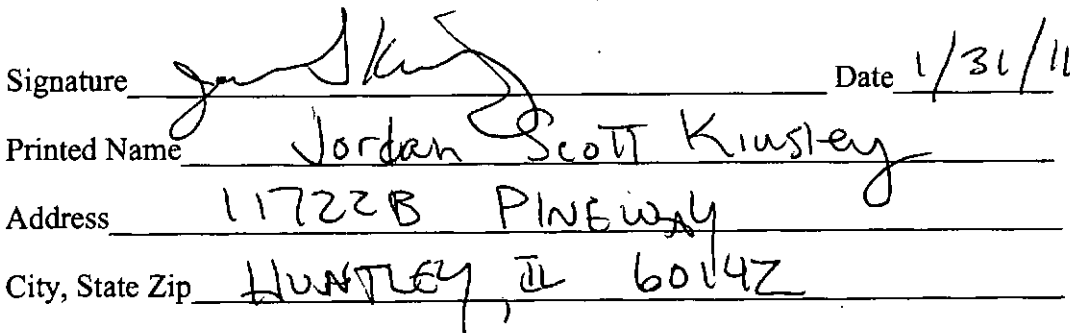 Signature Date 1/31/11
Printed Name Jordan Scott Kinsley
Address 11722B PINEWAY
City, State Zip HUNTLEY, IL 60142